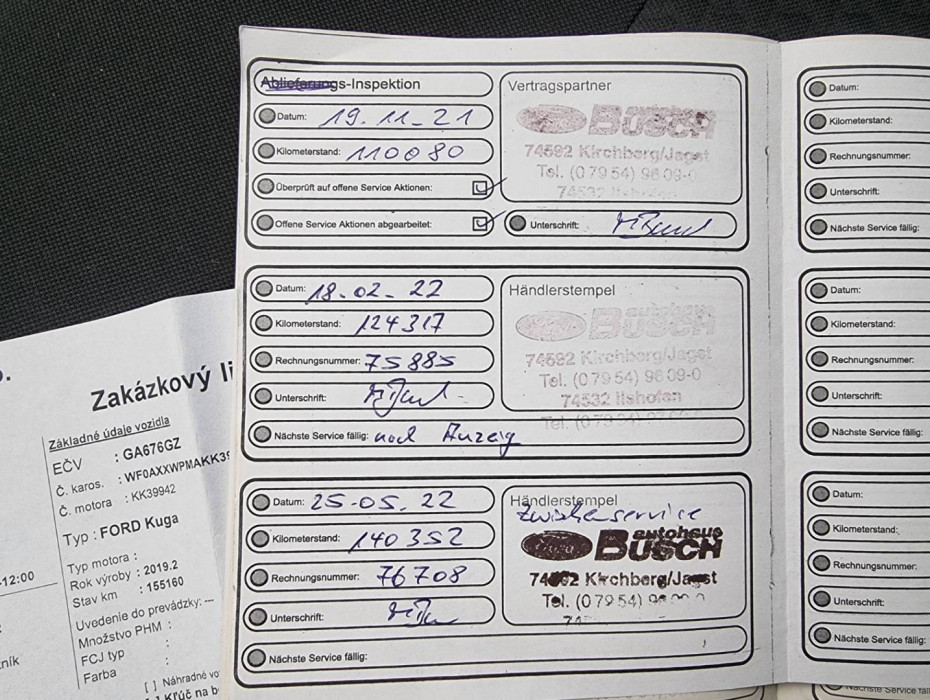 Ablieferungs-Inspektion
Datum: 19.11-21
Kilometerstand: 110080
Überprüft auf offene Service Aktionen:
Offene Service Aktionen abgearbeitet:
Vertragspartner
autohaus
BUSCH
74592 Kirchberg/Jagst
Tel. (0 79 54) 98 09-0
74532 Ilshofen
Unterschrift:
Datum: 18-02-22
Kilometerstand: 124317
Rechnungsnummer: 75885
Unterschrift:
Nächste Service fällig: nach Anzeig
Händlerstempel
autohaus
BUSCH
74592 Kirchberg/Jagst
Tel. (0 79 54) 98 09-0
74532 Ilshofen
Tel.
Datum: 25-05.22
Kilometerstand: 140352
Rechnungsnummer: 76708
Unterschrift:
Nächste Service fällig:
Händlerstempel
Zwischenservice
autohaus
BUSCH
74592 Kirchberg/Jagst
Tel. (0 79 54)
Datum:
Kilometerstand:
Rechnungsnummer:
Unterschrift:
Nächste Service fällig:
Datum:
Kilometerstand:
Rechnungsnummer:
Unterschrift:
Nächste Service fällig:
Datum:
Kilometerstand:
Rechnungsnummer:
Unterschrift:
Nächste Service fällig:
Nächste Service fäll
Zakázkový li
Základné údaje vozidla
EČV : GA676GZ
Č. karos. : WF0AXXWPMAKK39
Č. motora : KK39942
Typ : FORD Kuga
Typ motora :
Rok výroby : 2019.2
Stav km : 155160
Uvedenie do prevádzky: ---
Množstvo PHM :
FCJ typ :
Farba :
[ ] Náhradné vo
[ ] Kľúč na b
-12:00